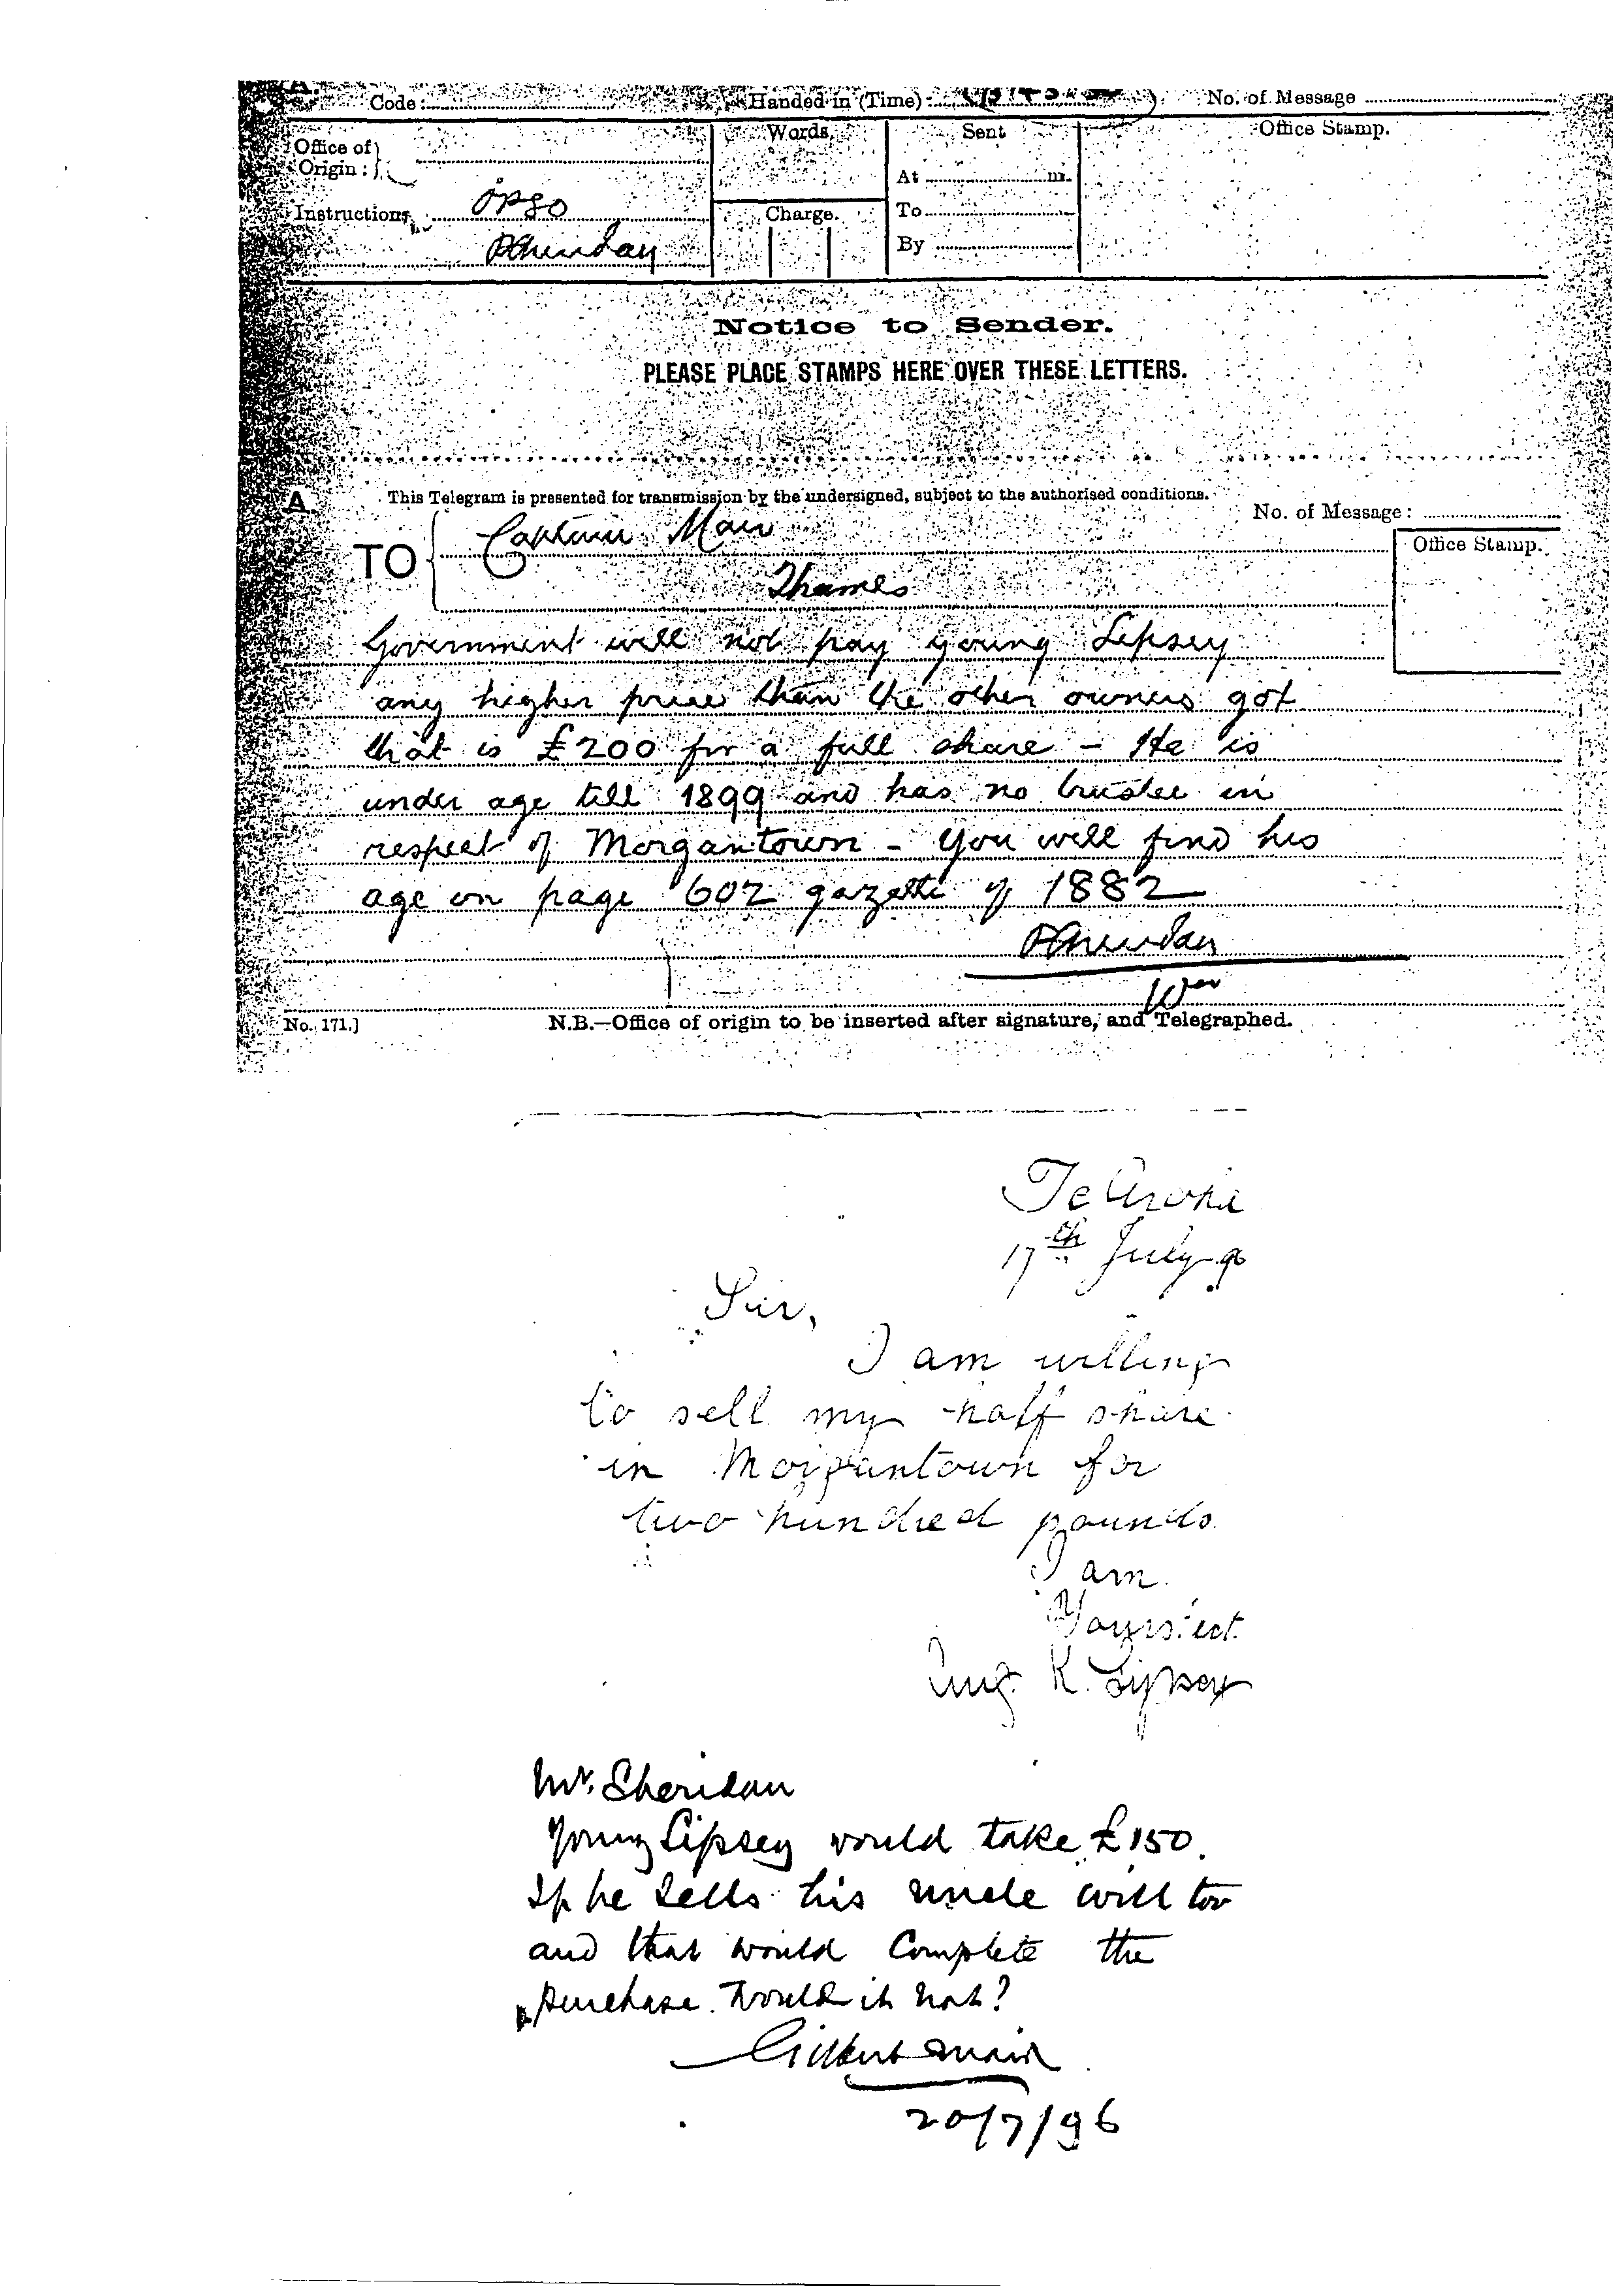 Code: Handed in (Time): No. of Message
Office of Origin: Words. Sent Office Stamp.
At m.
Instructions OPSO Charge. To
PSheridan By
Notice to Sender.
PLEASE PLACE STAMPS HERE OVER THESE LETTERS.
A. This Telegram is presented for transmission by the undersigned, subject to the authorised conditions.
No. of Message:
TO Captain Mair Office Stamp.
Thames
Government will not pay young Lipsey
any higher price than the other owners got
that is £200 for a full share - He is
under age till 1899 and has no trustee in
respect of Morgantown - You will find his
age on page 602 gazette of 1882
PSheridan
No. 171.] N.B.—Office of origin to be inserted after signature, and Telegraphed.
Te Aroha
17th July 96
Sir,
I am willing
to sell my half share
in Morgantown for
two hundred pounds.
I am.
Yours. ect.
Aug. K. Lipsey
Mr. Sheridan
Young Lipsey would take £150.
If he sells his uncle will too
and that would complete the
purchase. Would it not?
Gilbert Mair
20/7/96